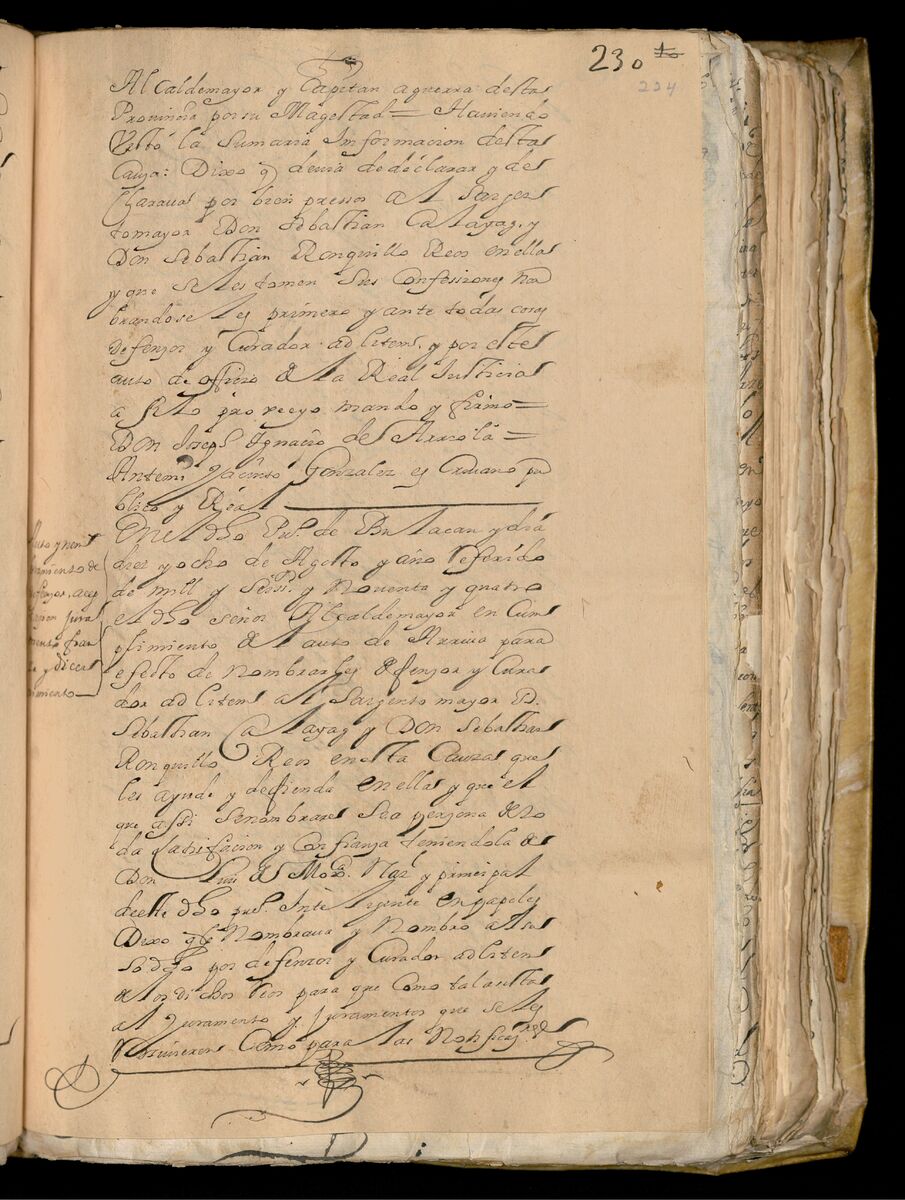 230 10
234
Alcaldemayor y Capitan aguerra desta
Provincia por su Magestad = Haviendo
Visto la Sumaria Informacion desta
Cauza: Dixo q̃ devia de declarar y de
Claraua por bien pressos al Sargen
tomayor Don Sebasthian Calayag, y
Don Sebasthian Ronquillo Reos en ella
y que se les tomen sus Confessiones nom
brandose les primero y ante todas cosas
defensor y Curador adlitem, y por este
auto de officio de la Real Justicia
assi lo proveyo mando y firmo =
Don Joseph Ignacio de Arzola =
Antemi Jacinto Gonzalez escrivano pu
blico y Real
En el dho Pu.º de Bulacan y dia
diez y ocho de Agosto y año referido
de mill y Seos.s y Noventa y quatro
el dho señor Alcaldemayor en Cum
plimiento del auto de Arriua para
efecto de Nombrarles defensor y Cura
dor adlitem al Sargento mayor D.
Sebasthian Calayag y Don Sebasthian
Ronquillo Reos en esta Cauza que
les ayude y defienda en ella y que el
que assi senombrare sea persona de to
da satisfacion y confianza teniendola de
Don Luis de Nal y principal
deste dho pue.º Inteligente en papeles
Dixo q̃ le Nombraua y Nombro al su
sodho por defensor y Curador adlitem
de los dichos reos para que como tal asista
al Juramento y Juramentos que se les
Reciuieren como para las Notificaz.es
Auto y nom
bramiento de
defensor, acep
tacion jura
mento fian
za y dicer
nimiento